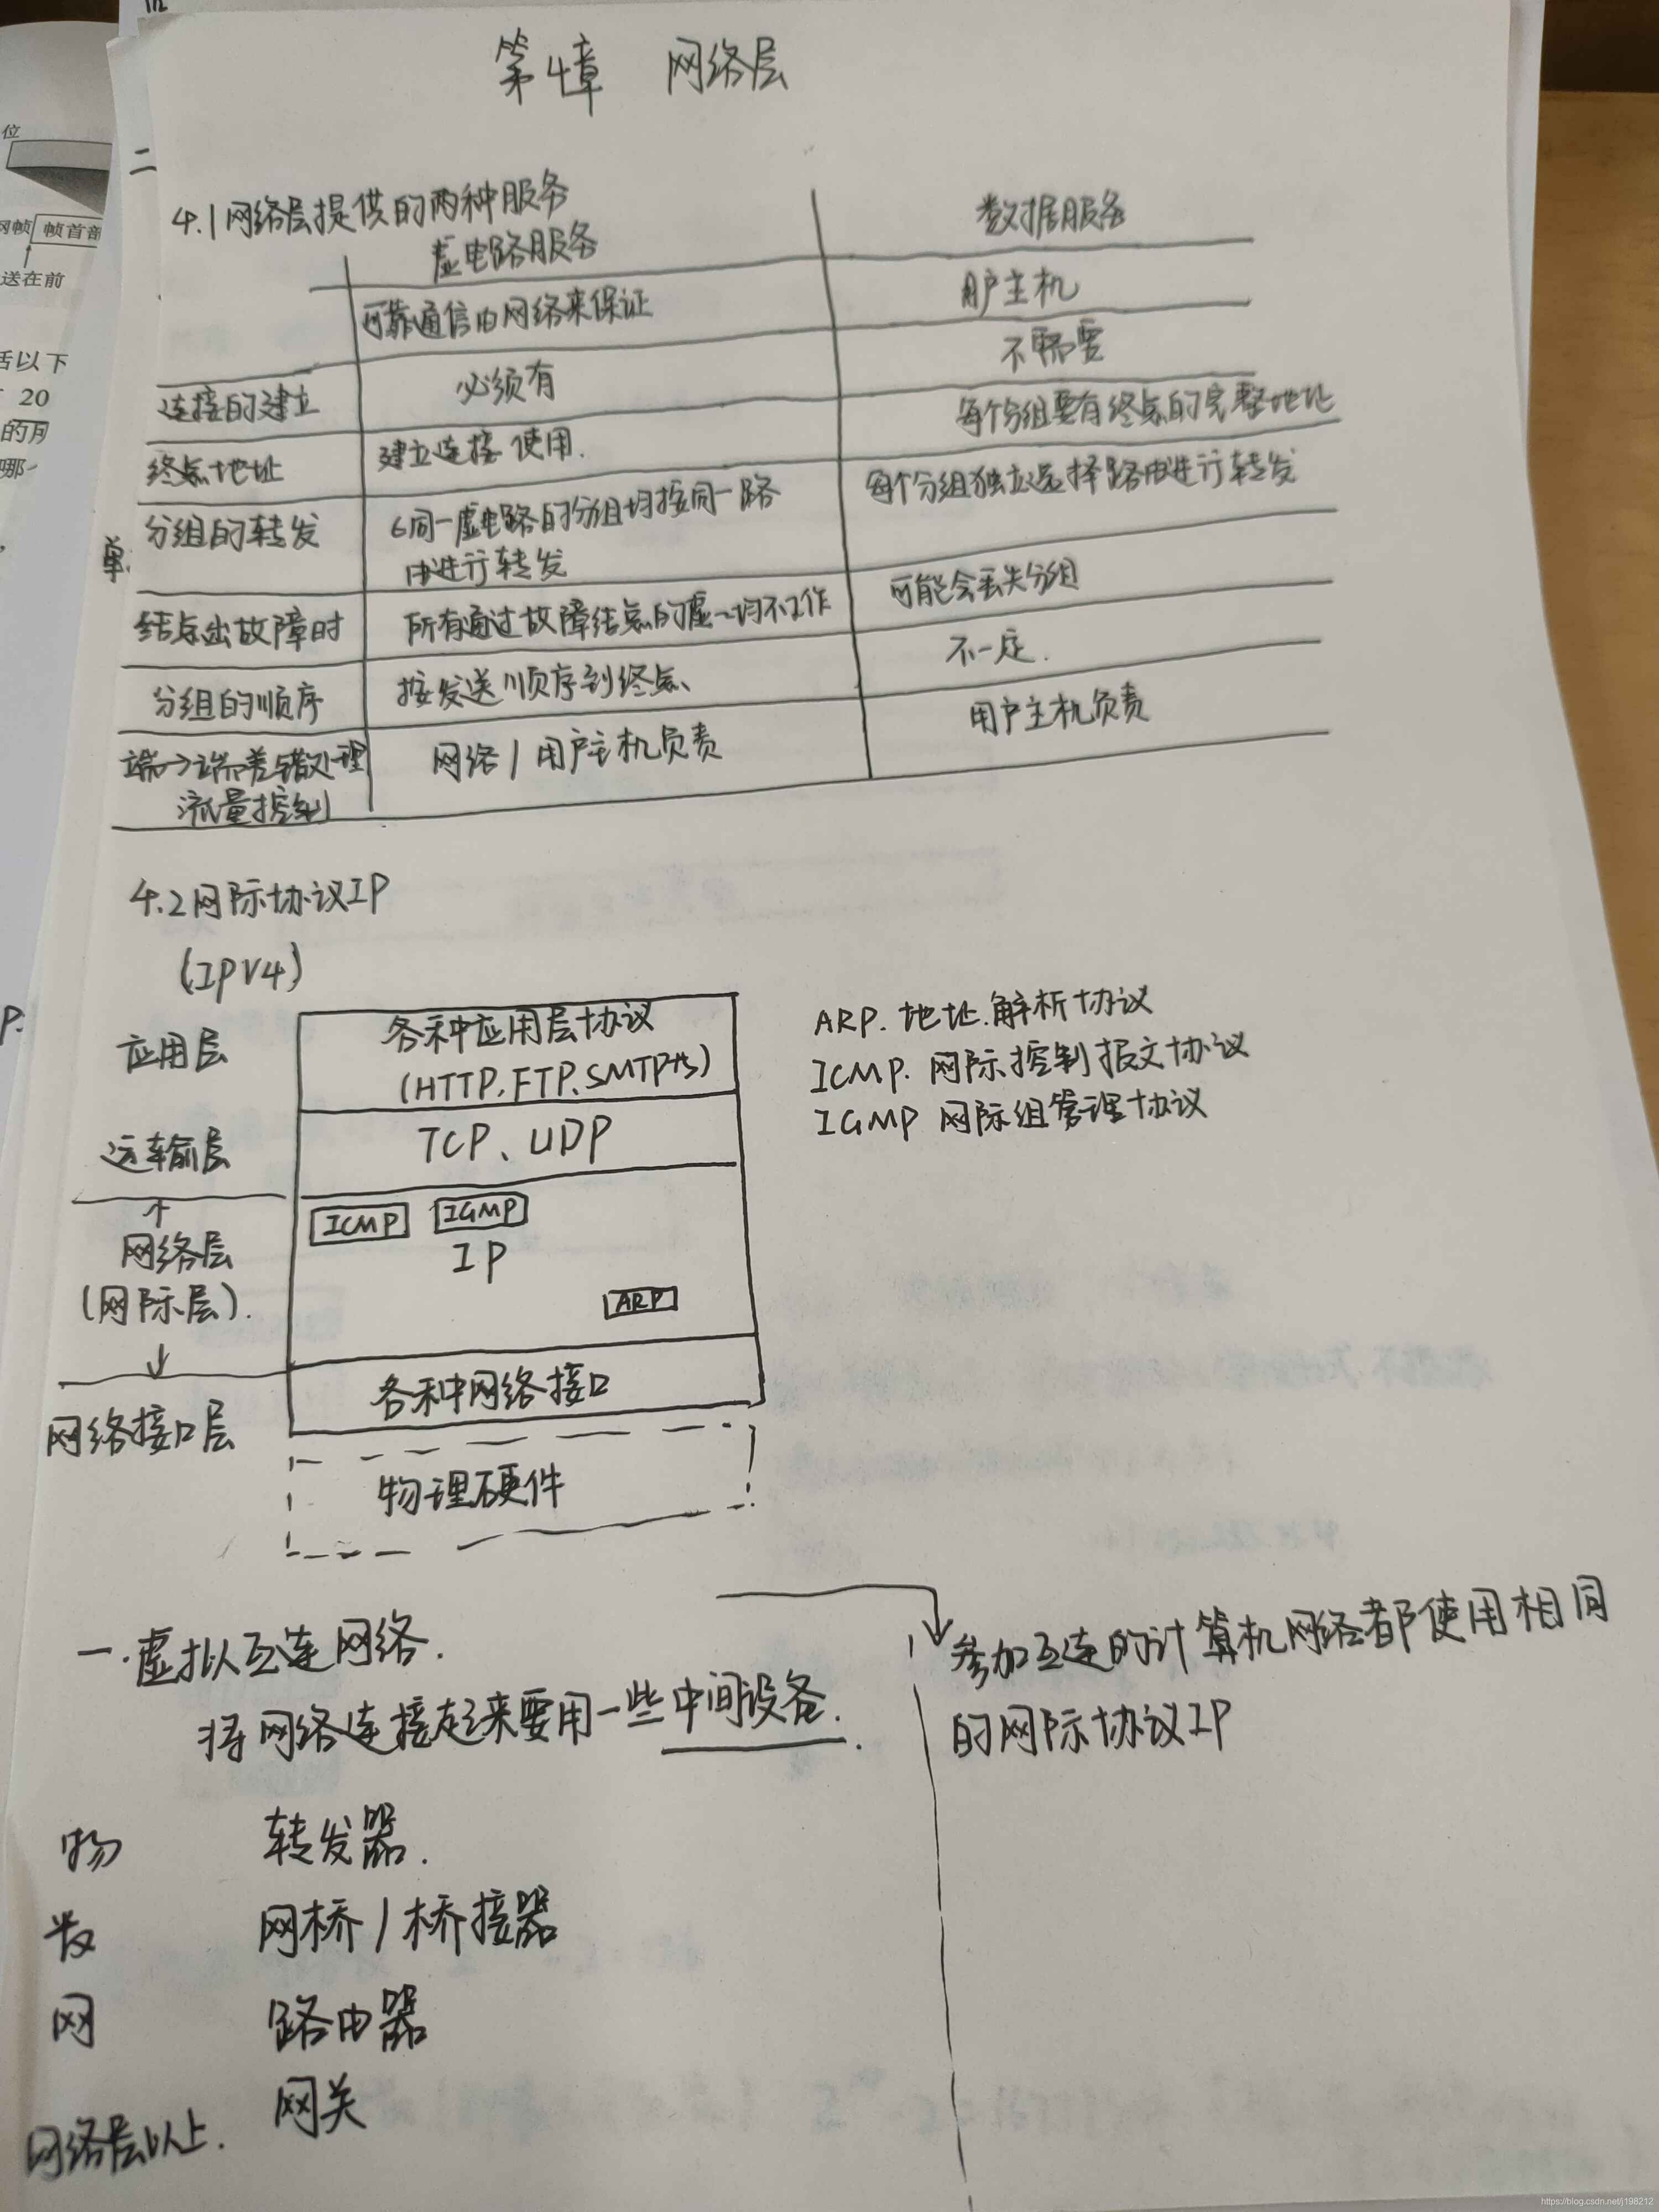 第4章 网络层
4.1 网络层提供的两种服务
虚电路服务 数据服务
可靠通信由网络来保证 用户主机
连接的建立 必须有 不需要
终点地址 建立连接 使用. 每个分组要有终点的完整地址
分组的转发 同一虚电路的分组均按同一路 每个分组独立选择路由进行转发
由进行转发
结点出故障时 所有通过故障结点的虚~均不工作 可能会丢失分组
分组的顺序 按发送顺序到终点、 不一定.
端→端差错处理 网络/用户主机负责 用户主机负责
流量控制
4.2 网际协议IP
(IPV4)
应用层 各种应用层协议
(HTTP, FTP、SMTP等)
运输层 TCP、UDP
网络层
(网际层).
ICMP IGMP
IP
ARP
网络接口层 各种网络接口
物理硬件
ARP. 地址.解析协议
ICMP. 网际控制报文协议
IGMP 网际组管理协议
一.虚拟互连网络.
将网络连接起来要用一些中间设备.
物 转发器.
数 网桥/桥接器
网 路由器
网络层以上. 网关
参加互连的计算机网络都使用相同
的网际协议IP
位
网帧 帧首部
送在前
括以下
20
的用
哪
二
单
P.
https://blog.csdn.net/j198212